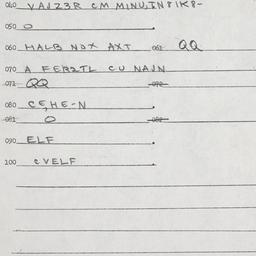 040 VAJZ3R CM MINU,IN8IK8-
050 O
060 HALB NOX AXT 061 QQ
070 A FER2TL CU NAJN
071 QQ 072
080 CE,HE-N
081 O 082
090 ELF
100 CVELF